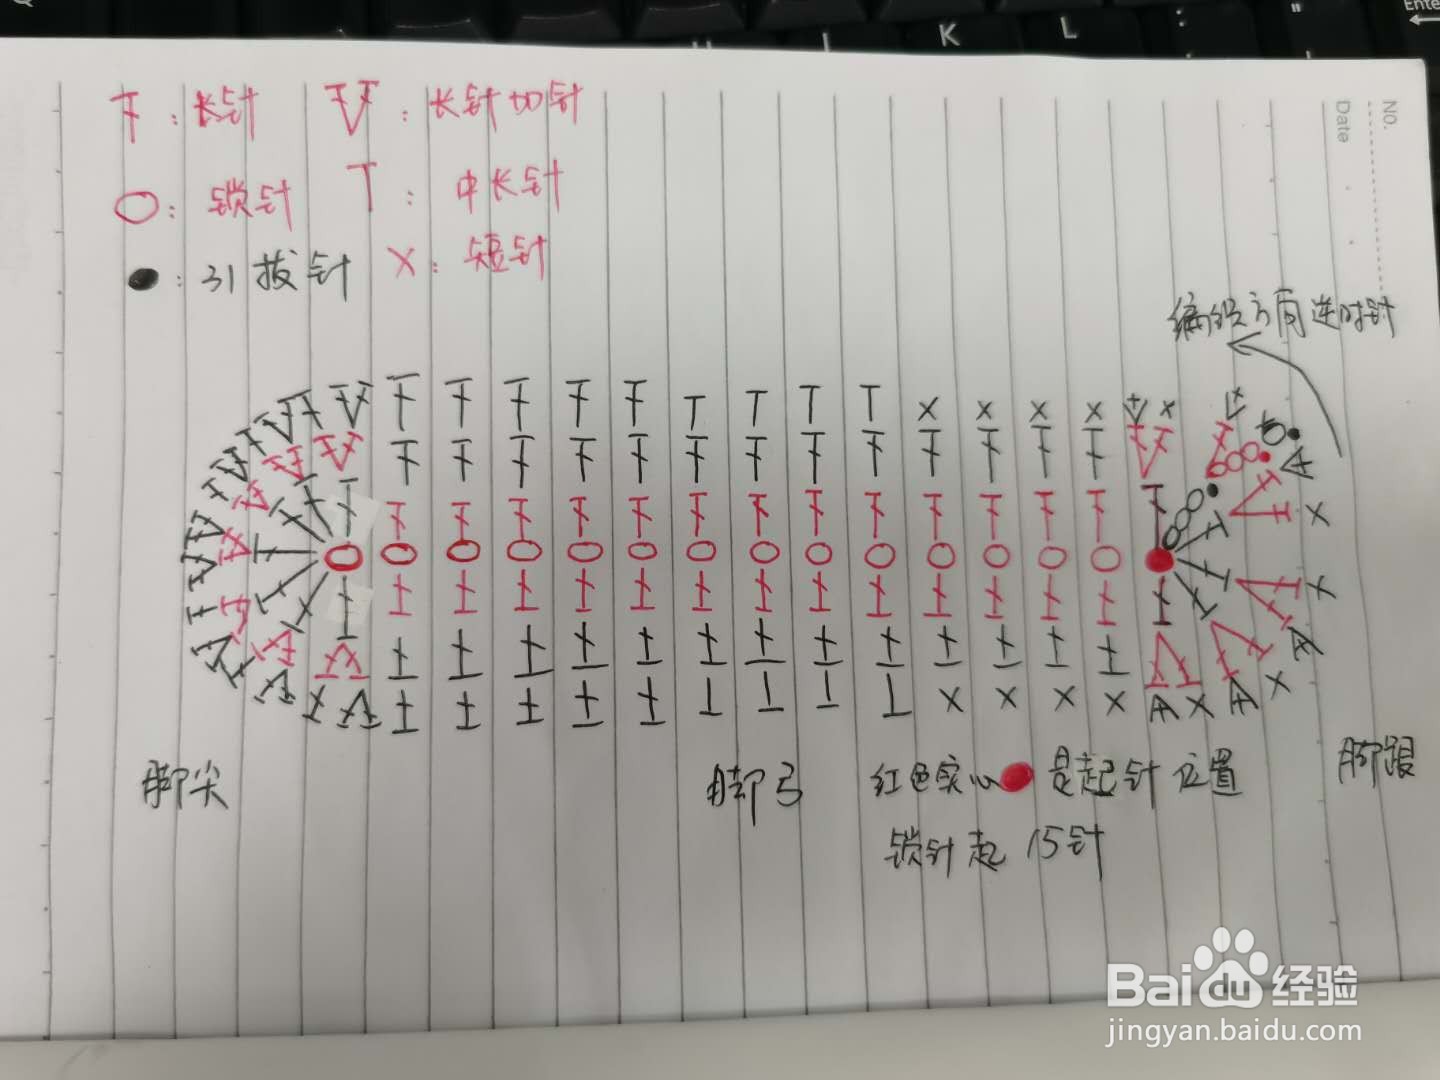 Enter
K L : "
NO.
Date
长针 : 长针加针
: 锁针 : 中长针
: 引拔针 X : 短针
编织方向逆时针
脚尖 脚弓 红色实心 是起针位置 脚跟
锁针起15针
Baidu经验
jingyan.baidu.com